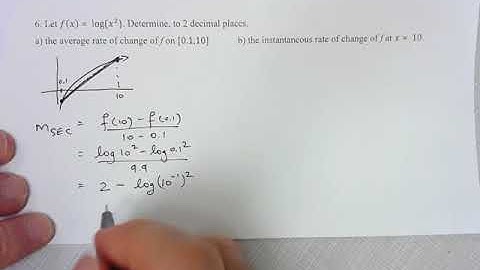 6. Let f(x) = log(x²). Determine, to 2 decimal places,
a) the average rate of change of f on [0.1,10] b) the instantaneous rate of change of f at x = 10.
0.1
10
M SEC = f(10) - f(0.1)
10 - 0.1
= log 10² - log 0.1²
9.9
= 2 - log(10⁻¹)²